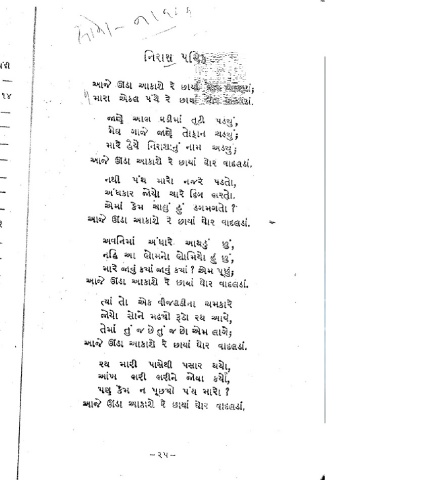 નિરાશ પથિક
આજે ઊંડા આકાશે રે છાયાં ઘોર વાદલડાં;
મારા એકલ પંથે રે છાયાં ઘોર વાદલડાં.
જાણે આભ ઘડીમાં તૂટી પડ્યું,
મેઘ ગાજે જાણે તોફાન ચડ્યું;
મારે હૈયે નિરાશાનું નામ અડ્યું;
આજે ઊંડા આકાશે રે છાયાં ઘોર વાદલડાં.
નથી પંથ મારો નજરે પડતો,
અંધકાર જોયો ચારે દિશ ભરતો.
એમાં કેમ ચાલું હું ડગમગતો ?
આજે ઊંડા આકાશે રે છાયાં ઘોર વાદલડાં.
અવનિમાં અંધારે આથડું છું,
નહિ આ ભોમનો ભોમિયો હું છું,
મારે જાવું કયાં જાવું કયાં ? એમ પૂછું;
આજે ઊંડા આકાશે રે છાયાં ઘોર વાદલડાં.
ત્યાં તો એક વીજળીના ચમકારે
જોયો સોને મઢ્યો રૂડો રથ આવે,
તેમાં તું જ છે તું જ છો એમ લાગે;
આજે ઊંડા આકાશે રે છાયાં ઘોર વાદલડાં.
રથ મારી પાસેથી પસાર થયો,
આંખ ભરી ભરીને જોયા કર્યો,
પણ કેમ ન પૂછ્યો પંથ મારો ?
આજે ઊંડા આકાશે રે છાયાં ઘોર વાદલડાં.
-૨૫-
૧૪